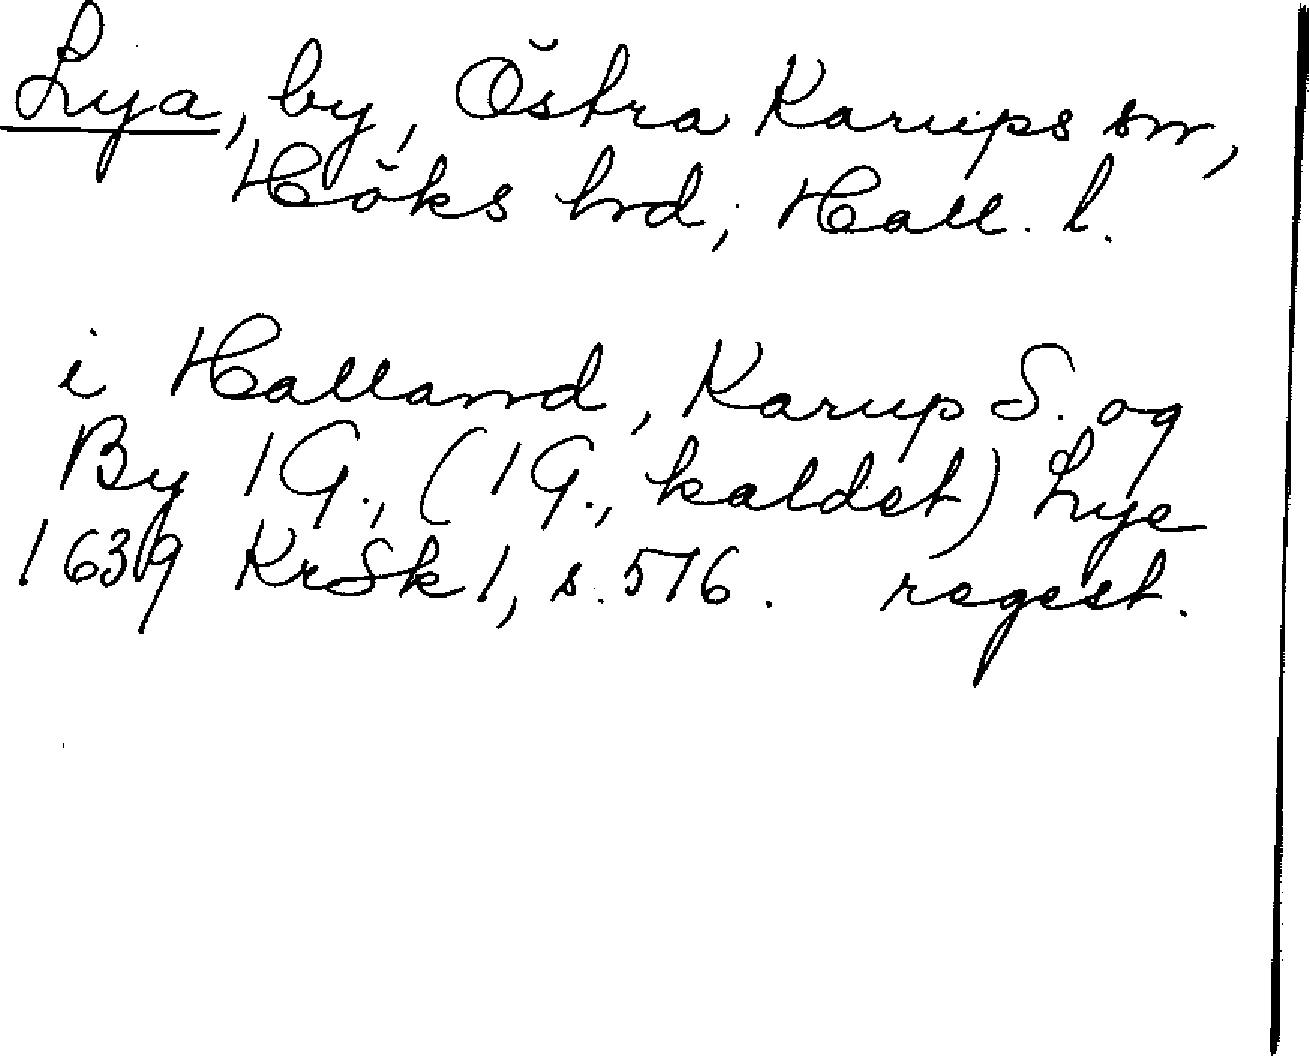 Lya, by, Östra Karups sn,
Höks hrd, Hall. l.
i Halland, Karup S. og
By 1 G., (1 G., kaldet) Lye
1639 KrSk 1, s. 576. regest.